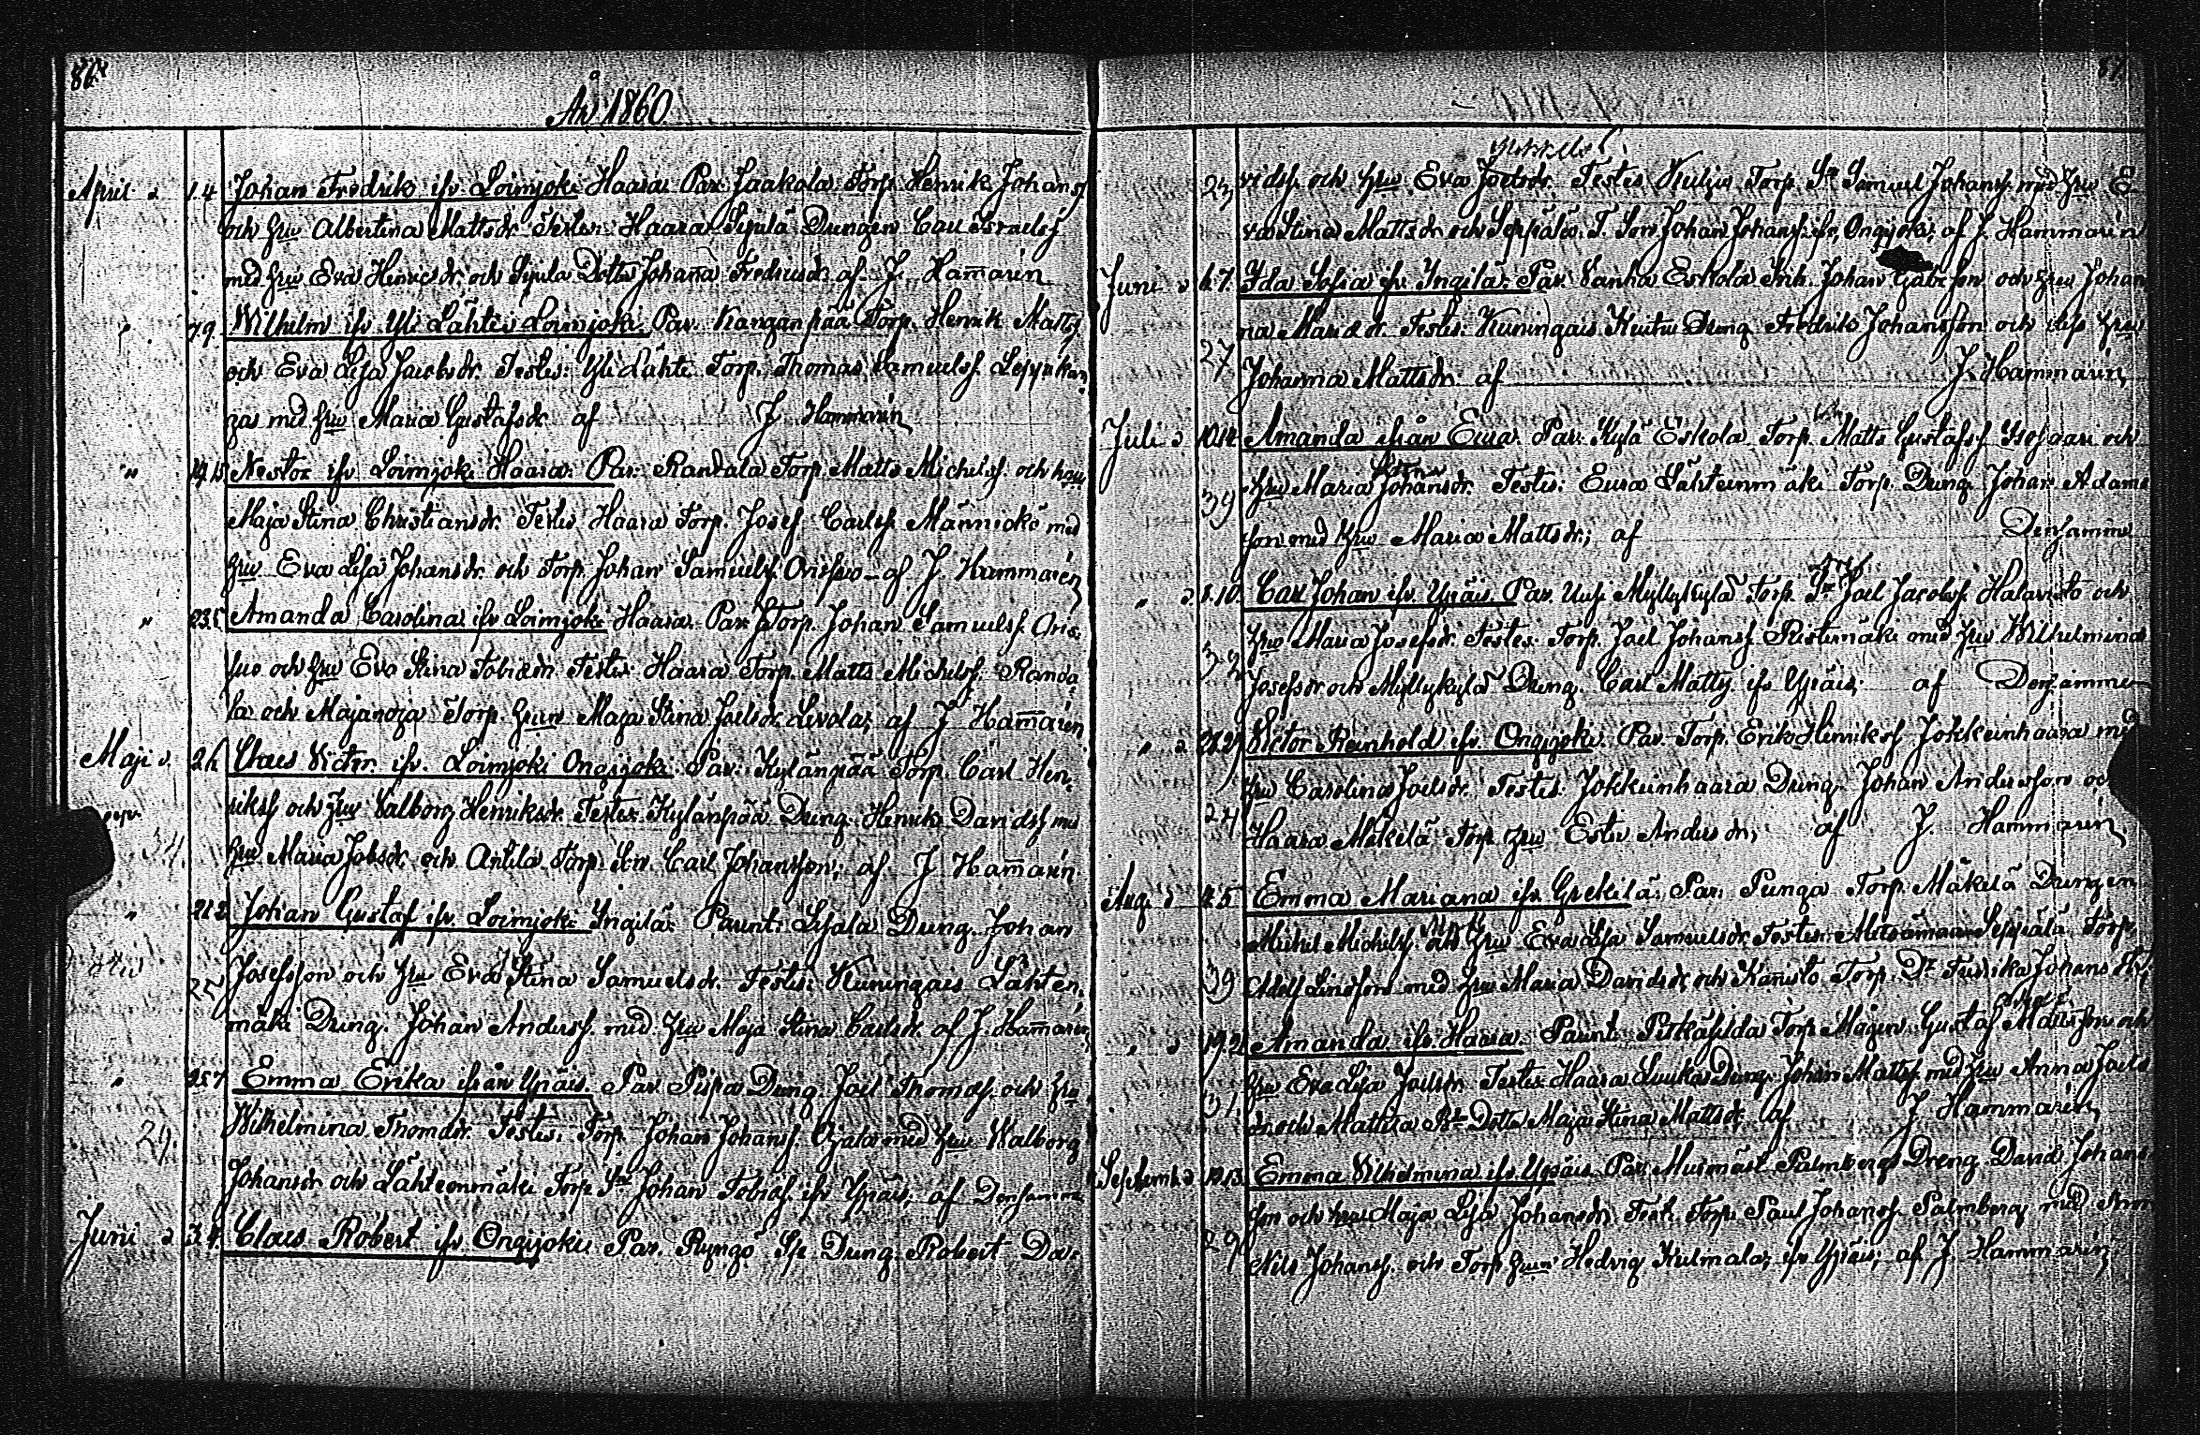 86
År 1860
April d. 1.4 Johan Fredrik ifr. Loimjoki Haara Par. Jaakola Torp. Henrik Johanss
och hru Albertina Mattsdr. Testes: Haara Sipilä Drengen Carl Israelss
med hru Eva Henricsdr. och Sipila Dotter Johana Fredricsdr. af J. Hamarén
" 7.9. Wilhelm ifr. Yli Lähte Loimjoki Par. Kanganpää Torp. Henrik Matts
och Eva Lisa Jacobsdr. Testes: Yli Lähte Torp. Thomas Samuelss.
gas med hru Maria Gustafsdr. af J. Hammarén
" 14.15 Nestor ifr. Loimjoki Haara. Par. Randala Torp. Matts Michelss. och hru
Maja Stina Christiansdr. Testes Haara Torp. Josef Carlss. Männickö med
hru Eva Lisa Johansdr. och Torp. Johan Samuelss. Orisuo af J. Hammarén
" 23.5 Amanda Carolina ifr Loimjoki Haara. Par. Torp. Johan Samuelss. Oris-
suo och hru Eva Stina Tobiædr. Testes: Haara Torp. Matts Michelss. Randa-
la och Majanoja Torp. hrun Maja Stina Joelsdr. Levola; af J Hamarén
Maji d. 2.6 Claes Victor. ifr. Loimjoki Ongijoki. Par: Kylänpää Torp. Carl Hen-
rikss och hru Valborg Henriksdr. Testes: Kylänpää Dreng Henrik Davidss med
34. hru Maria Jobsdr. och Antila Torp. Son Carl Johansson; af J Hamarén
" 21.2 Johan Gustaf ifr. Loimjoki Yngilä: Parent: Dreng. Johan
27 Josefsson och hru Eva Stina Samuelsdr. Testes: Kuningais Lähten-
mäki Dreng. Johan Anderss. med hru Maja Stina Carlsdr. af J. Hamarén
" 25.7 Emma Erika ifrån Ypäis. Par. Pispa Dreng Joel Thomass. och hru
29. Wilhelmina Thomdr. Testes: Torp. Johan Johanss. Ojala med hru Walborg
Johansdr och Lähteenmäki Torp Sn Johan Tobiæss. ifr Ypäis; af Densamme
Juni d 3.4. Claes Robert ifr Ongijoki Par. Ryngö Dreng Robert Da-
87
23 vidss. och hru Eva Joelsdr. Testes Torp. Sn Samuel Johanss. med hru E-
va Stina Mattsdr och Seppälä T. Son Johan Johanss. ifr. Ongijoki; af J. Hammarén
Juni d 6.7. Ida Sofia ifr. Yngilä: Par. Vanha Eskola Inh. Johan och hru Johan
na Mariædr. Testes: Kuningais Dreng Fredrik Johansson och dess hru
27 Johanna Mattsdr. af J. Hammarén
Juli d 10.12. Amanda ifrån Eura. Par. Kylä Eskola Torp. Matts Gustafss. Isosaari och
39 hru Maria Johansdr. Testes: Eura Lähteenmäki Torp. Dreng Johan Adams
son med hru Maria Mattsdr.; af Densamme
" d. 8.10. Carl Johan ifr. Ypäis. Par. Uusi Myllykylä Torp. Sn Joel Jacobss. Halavisto och
32 hru Maria Josefsdr. Testes: Torp. Joel Johanss. Ristimäki med hru Wilhelmina
Josefsdr och Myllykylä Dreng. Carl Matts ifr. Ypäis; af Densamme
" d. 28.29 Victor Reinhold ifr. Ongijoki. Par. Torp. Erik Henrikss Jokkeinhaara med
24 hru Carolina Joelsdr. Testes: Jokkeinhaara Dreng. Johan Andersson och
Haara Mäkilä Torp hru Ester Andersdr; af J. Hammarén
Aug. d 4.5 Emma Mariana ifr. Grekilä. Par. Punga Torp. Mäkilä Drengen
Michel Michelss och hru Eva Lisa Samuelsdr. Testes: Metsämaa Seppälä Torp.
39 Adolf Lindfors med hru Maria Davidsdr. och Kanisto Torp. Dr Fredrika Johansdr;
" d 19.21 Amanda ifr. Haara. Parent: Torp Mågen Gustaf Mattsson och
31. hru Eva Lisa Joelsdr Testes: Haara Luuka Dreng Johan Matts med hru Anna Joels
dr. och Mattila Bd Dotter Maja Stina Mattsdr. af J Hammarén
Septemb. d 10.13. Emma Wilhelmina ifr. Ypäis. Par. Murmäst. Palmbergs Dreng David Johans
29 son och hru Maja Lisa Johansdr. Test. Torp. Paul Johanss. Palmberg med
Nils Johanss. och Torp. hrun Hedvig Kulmala; ifr Ypäis; af J. Hammarén